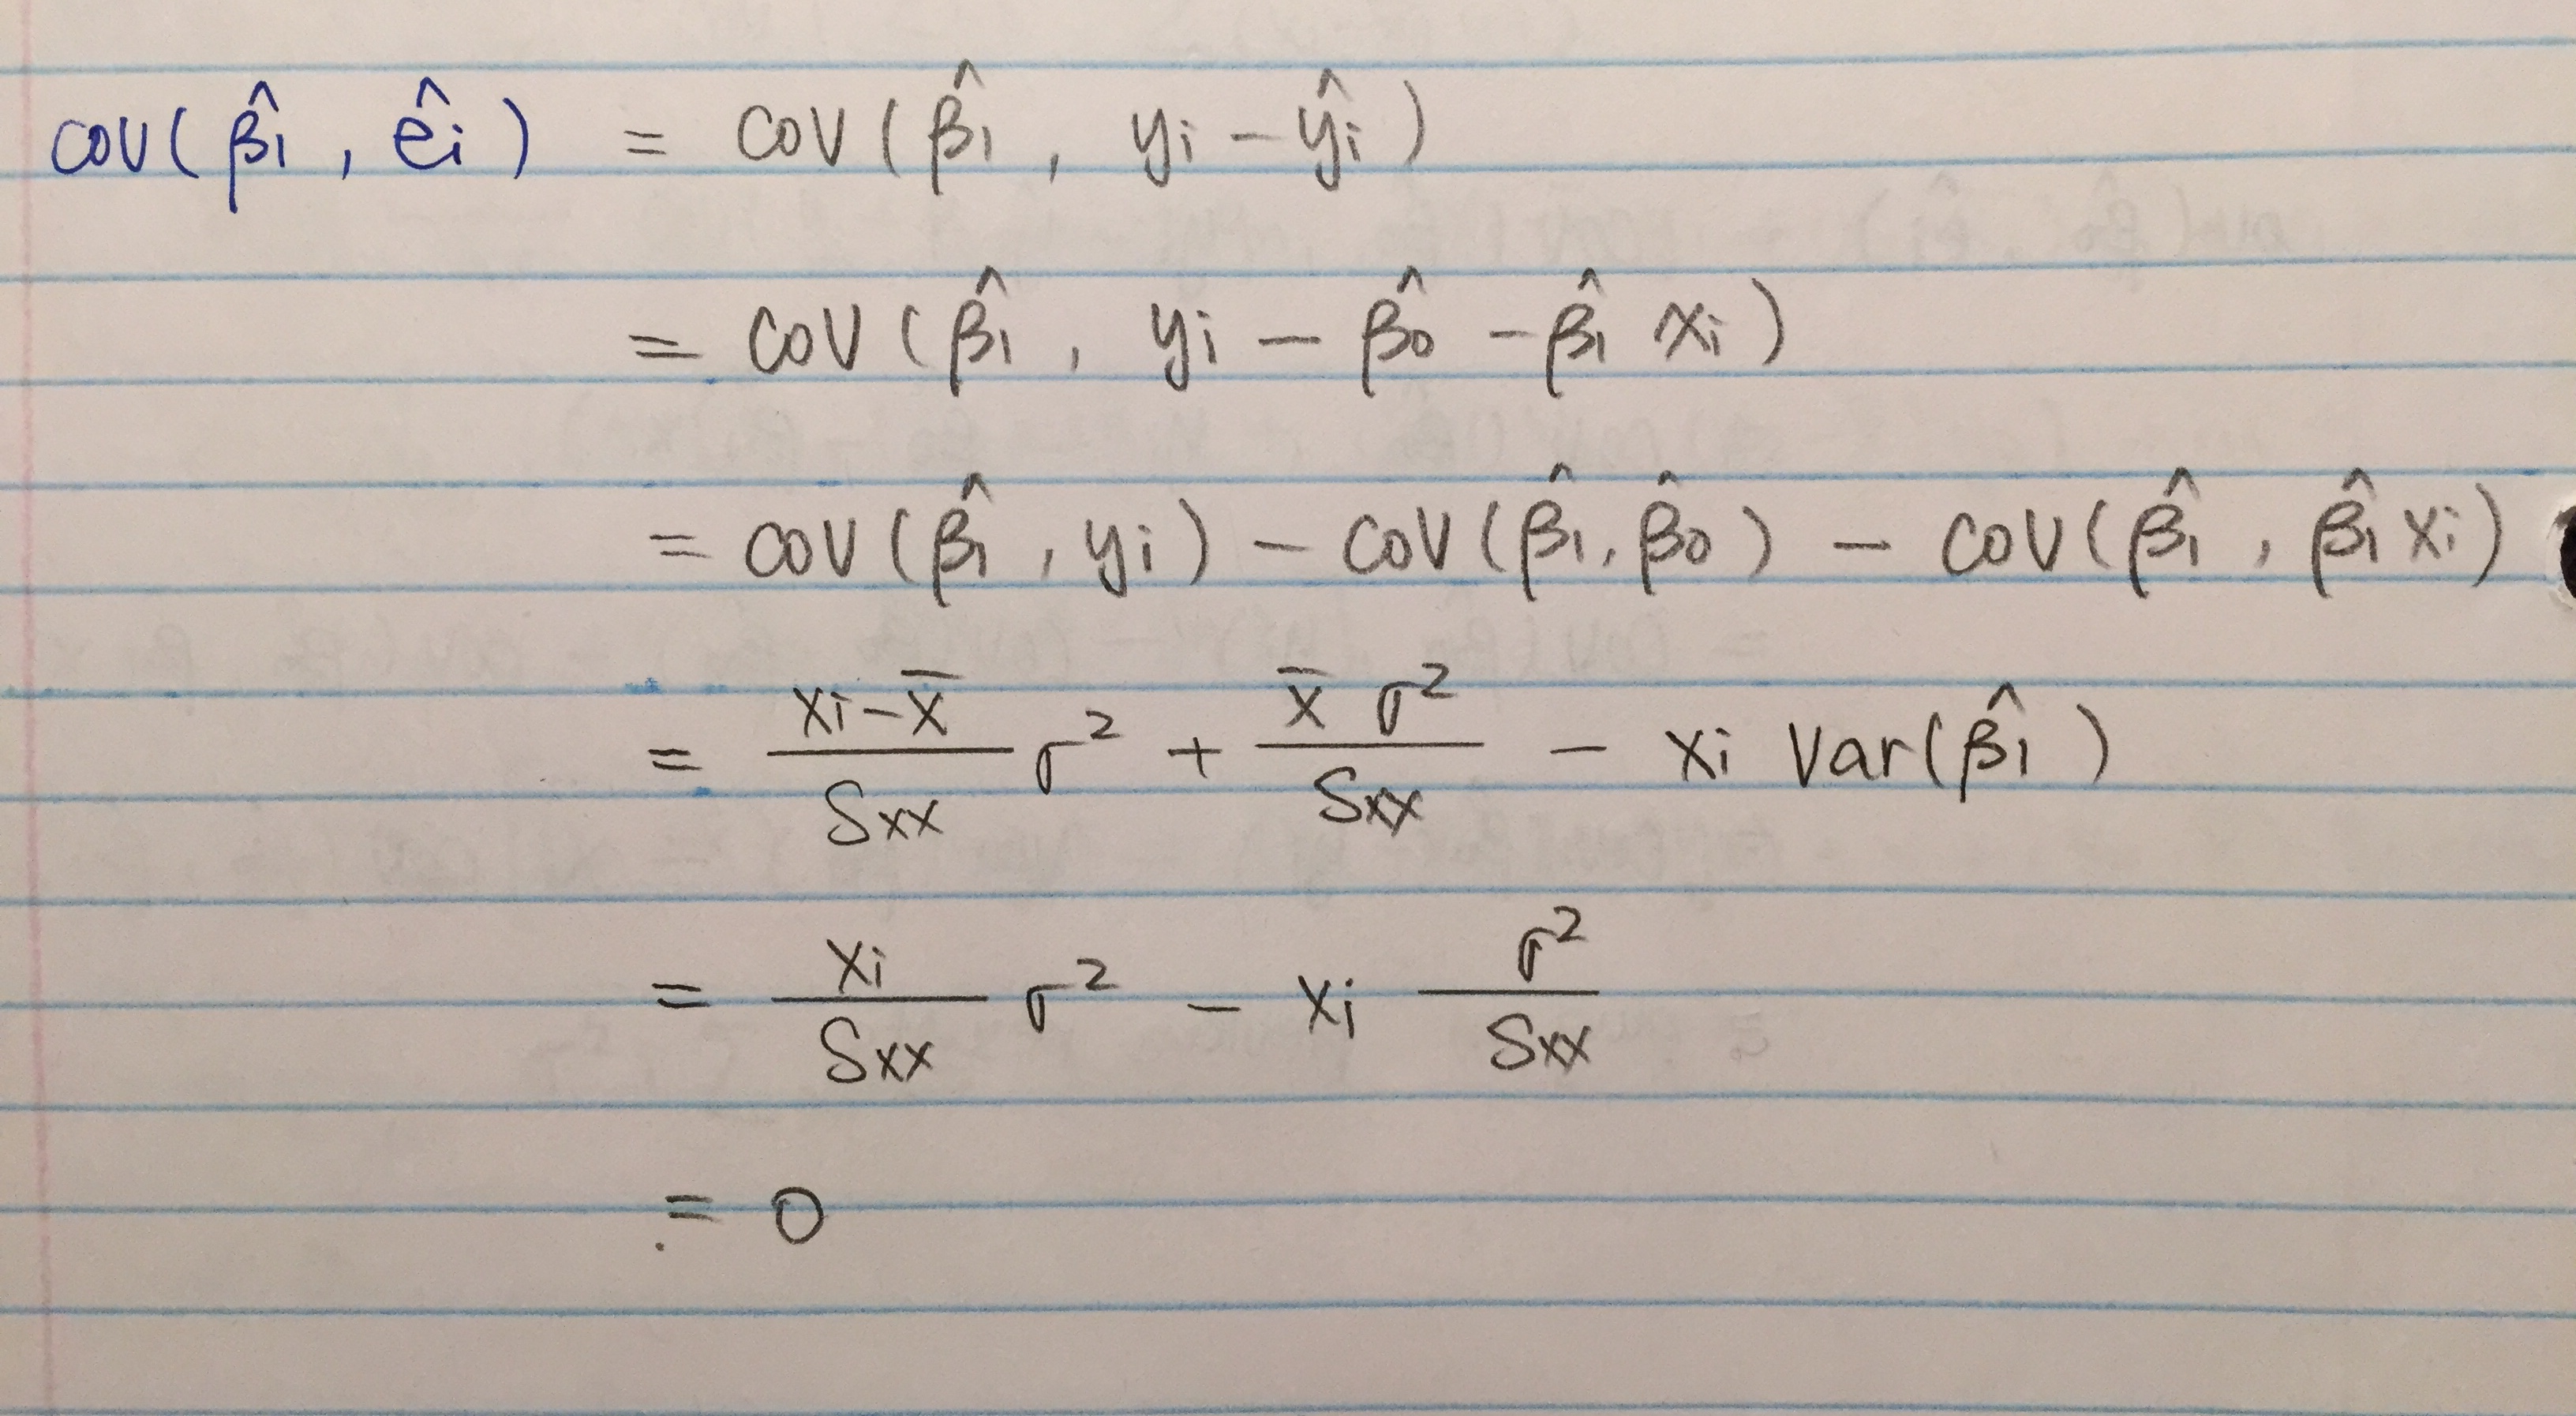 cov(β̂1, êi) = cov(β̂1, yi − ŷi)
= cov(β̂1, yi − β̂0 − β̂1 xi)
= cov(β̂1, yi) − cov(β̂1, β̂0) − cov(β̂1, β̂1 xi)
= (xi − x̄)/Sxx σ² + x̄ σ²/Sxx − xi Var(β̂1)
= xi/Sxx σ² − xi σ²/Sxx
= 0